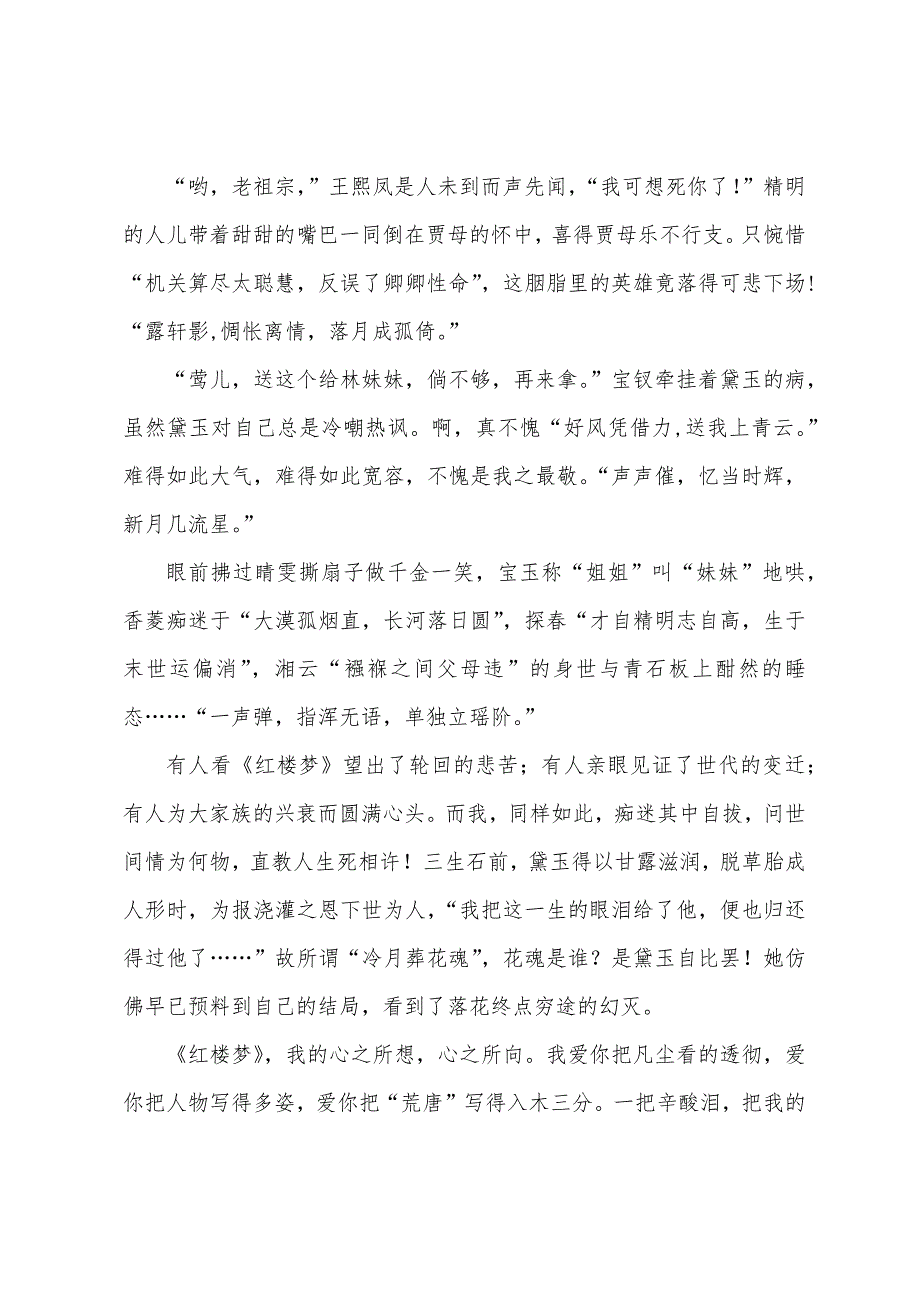 “哟，老祖宗，”王熙凤是人未到而声先闻，“我可想死你了！”精明
的人儿带着甜甜的嘴巴一同倒在贾母的怀中，喜得贾母乐不行支。只惋惜
“机关算尽太聪慧，反误了卿卿性命”，这胭脂里的英雄竟落得可悲下场！
“露轩影,惆怅离情，落月成孤倚。”
“莺儿，送这个给林妹妹，倘不够，再来拿。”宝钗牵挂着黛玉的病，
虽然黛玉对自己总是冷嘲热讽。啊，真不愧“好风凭借力,送我上青云。”
难得如此大气，难得如此宽容，不愧是我之最敬。“声声催，忆当时辉，
新月几流星。”
眼前拂过晴雯撕扇子做千金一笑，宝玉称“姐姐”叫“妹妹”地哄，
香菱痴迷于“大漠孤烟直，长河落日圆”，探春“才自精明志自高，生于
末世运偏消”，湘云“襁褓之间父母违”的身世与青石板上酣然的睡
态……“一声弹，指浑无语，单独立瑶阶。”
有人看《红楼梦》望出了轮回的悲苦；有人亲眼见证了世代的变迁；
有人为大家族的兴衰而圆满心头。而我，同样如此，痴迷其中自拔，问世
间情为何物，直教人生死相许！三生石前，黛玉得以甘露滋润，脱草胎成
人形时，为报浇灌之恩下世为人，“我把这一生的眼泪给了他，便也归还
得过他了……”故所谓“冷月葬花魂”，花魂是谁？是黛玉自比罢！她仿
佛早已预料到自己的结局，看到了落花终点穷途的幻灭。
《红楼梦》，我的心之所想，心之所向。我爱你把凡尘看的透彻，爱
你把人物写得多姿，爱你把“荒唐”写得入木三分。一把辛酸泪，把我的